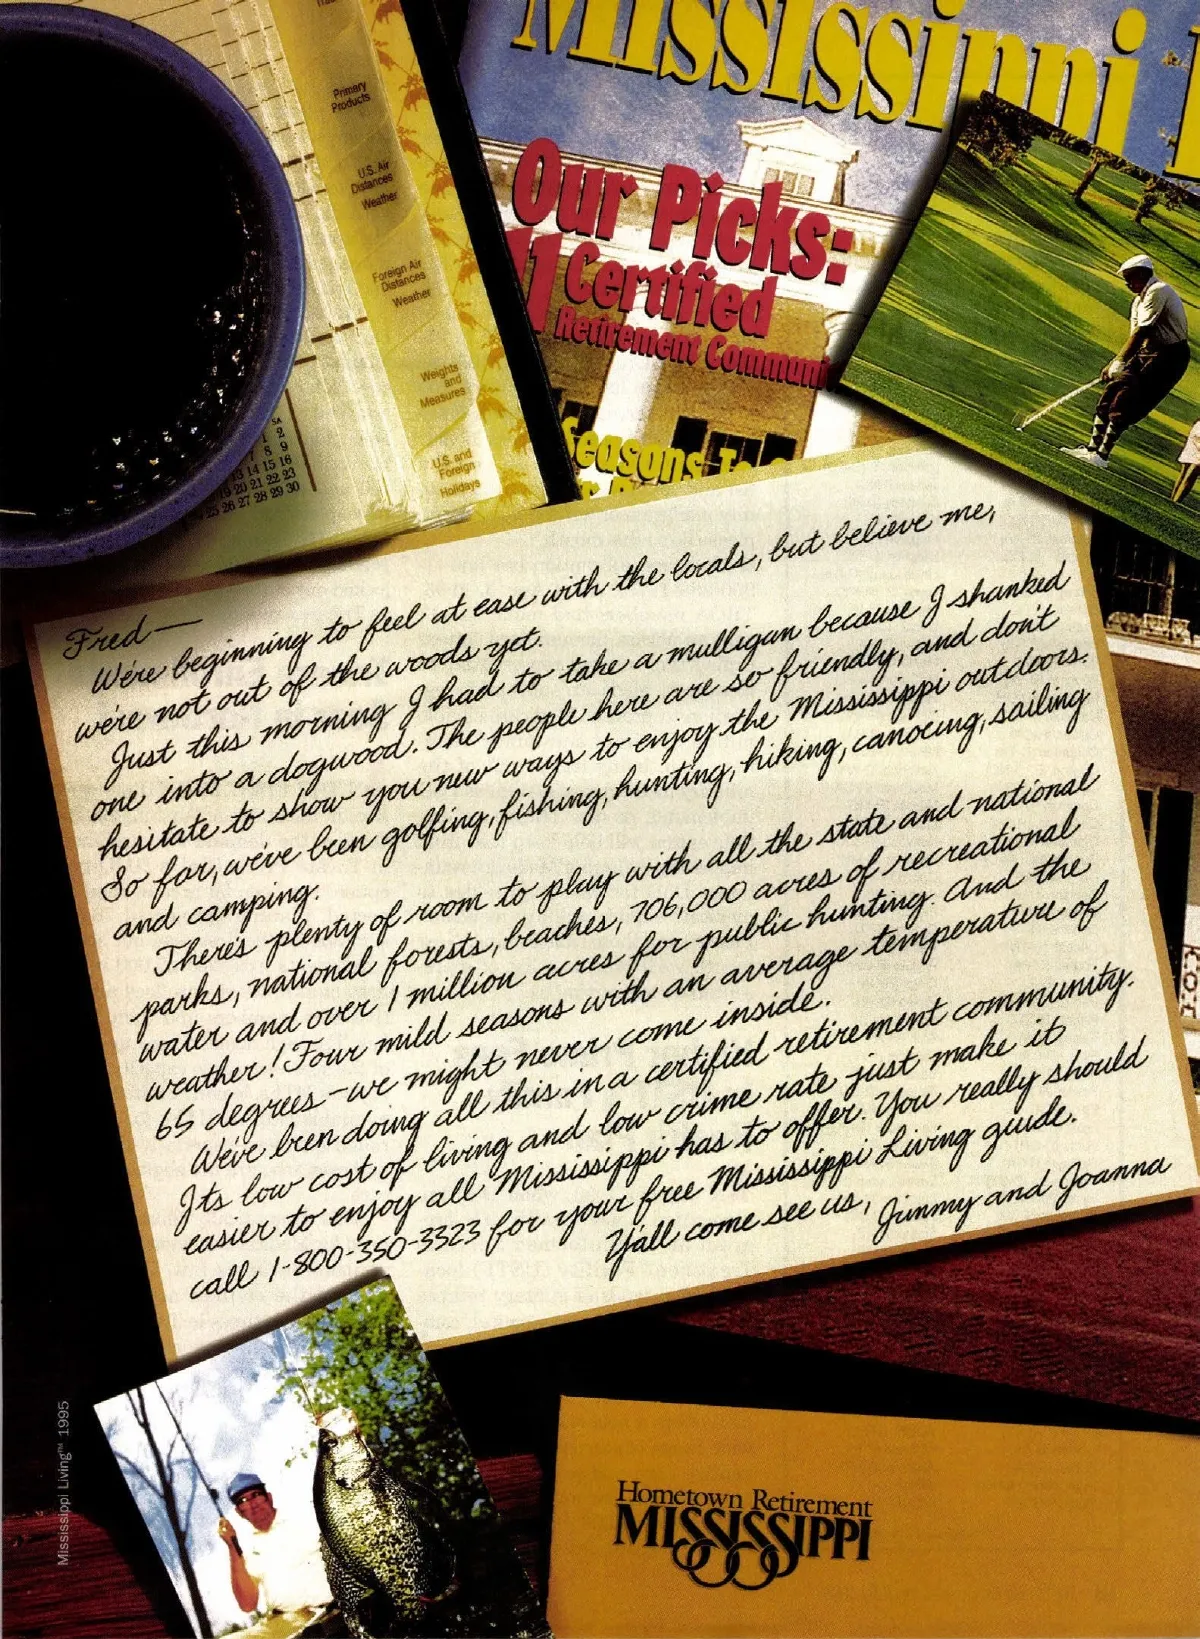 Primary
Products
U.S. Air
Distances
Weather
Foreign Air
Distances
Weather
Weights
and
Measures
U.S. and
Foreign
Holidays
SA
1 2
7 8 9
13 14 15 16
19 20 21 22 23
25 26 27 28 29 30
Mississippi
Our Picks:
11 Certified
Retirement Communi
Seasons To
Fred—
We're beginning to feel at ease with the locals, but believe me,
we're not out of the woods yet.
Just this morning I had to take a mulligan because I shanked
one into a dogwood. The people here are so friendly, and don't
hesitate to show you new ways to enjoy the Mississippi outdoors.
So far, we've been golfing, fishing, hunting, hiking, canoeing, sailing
and camping.
There's plenty of room to play with all the state and national
parks, national forests, beaches, 706,000 acres of recreational
water and over 1 million acres for public hunting. And the
weather! Four mild seasons with an average temperature of
65 degrees - we might never come inside.
We've been doing all this in a certified retirement community.
Its low cost of living and low crime rate just make it
easier to enjoy all Mississippi has to offer. You really should
call 1-800-350-3323 for your free Mississippi Living guide.
Y'all come see us, Jimmy and Joanna
Mississippi Living™ 1995
Hometown Retirement
MISSISSIPPI